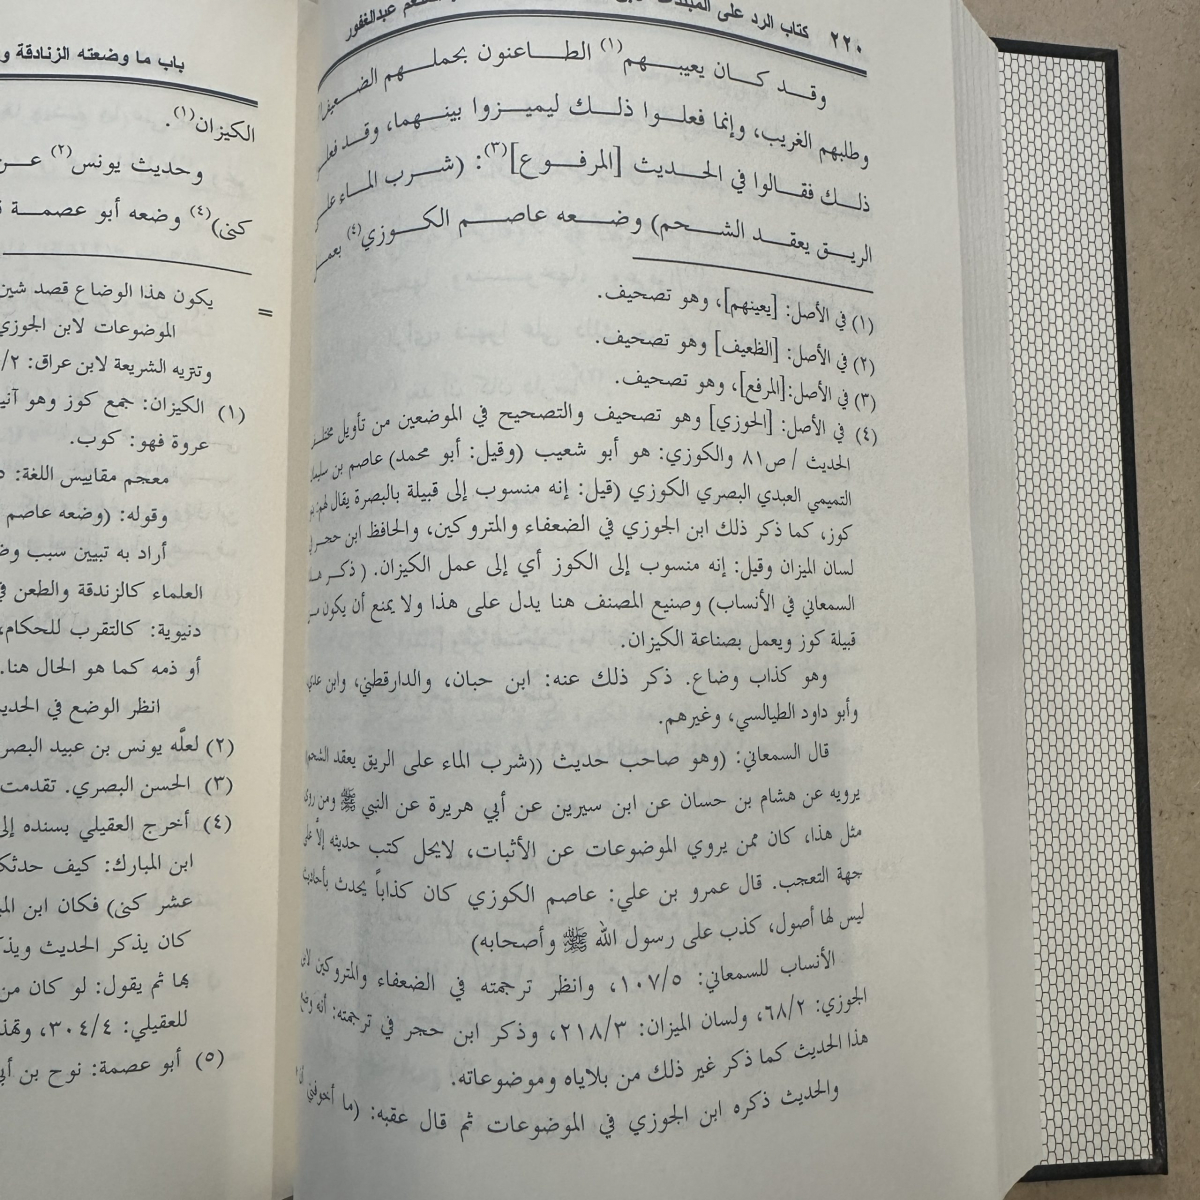 ٢٢٠ كتاب الرد على المبتدعة عبدالغفور
وقد كان يعيبهم(١) الطاعنون بحملهم
وطلبهم الغريب، وإنما فعلوا ذلك ليميزوا بينهما، وقد
ذلك فقالوا في الحديث [المرفوع](٣): (شرب الماء على
الريق يعقد الشحم) وضعه عاصم الكوزي(٤)
(١) في الأصل: [يعينهم]، وهو تصحيف.
(٢) في الأصل: [الظعيف] وهو تصحيف.
(٣) في الأصل:[المرفع]، وهو تصحيف.
(٤) في الأصل: [الحوزي] وهو تصحيف والتصحيح في الموضعين من تأويل مختلف
الحديث / ص٨١ والكوزي: هو أبو شعيب (وقيل: أبو محمد) عاصم بن سليمان
التميمي العبدي البصري الكوزي (قيل: إنه منسوب إلى قبيلة بالبصرة يقال لهم:
كوز، كما ذكر ذلك ابن الجوزي في الضعفاء والمتروكين، والحافظ ابن حجر
لسان الميزان وقيل: إنه منسوب إلى الكوز أي إلى عمل الكيزان. (ذكر
السمعاني في الأنساب) وصنيع المصنف هنا يدل على هذا ولا يمنع أن يكون
قبيلة كوز ويعمل بصناعة الكيزان.
وهو كذاب وضاع. ذكر ذلك عنه: ابن حبان، والدارقطني، وابن عدي
وأبو داود الطيالسي، وغيرهم.
قال السمعاني: (وهو صاحب حديث ((شرب الماء على الريق يعقد الشحم
يرويه عن هشام بن حسان عن ابن سيرين عن أبي هريرة عن النبي ﷺ ومن روى
مثل هذا، كان ممن يروي الموضوعات عن الأثبات، لايحل كتب حديثه إلاّ على
جهة التعجب. قال عمرو بن علي: عاصم الكوزي كان كذاباً يحدث بأحاديث
ليس لها أصول، كذب على رسول الله ﷺ وأصحابه)
الأنساب للسمعاني: ١٠٧/٥، وانظر ترجمته في الضعفاء والمتروكين لابن
الجوزي: ٦٨/٢، ولسان الميزان: ٢١٨/٣، وذكر ابن حجر في ترجمته: أنه
هذا الحديث كما ذكر غير ذلك من بلاياه وموضوعاته.
والحديث ذكره ابن الجوزي في الموضوعات ثم قال عقبه: (ما
باب ما وضعته الزنادقة
الكيزان(١).
وحديث يونس(٢) عن
كنى)(٤) وضعه أبو عصمة
= يكون هذا الوضاع قصد شين
الموضوعات لابن الجوزي
وتنزيه الشريعة لابن عراق: ٢/
(١) الكيزان: جمع كوز وهو آنية
عروة فهو: كوب.
معجم مقاييس اللغة:
وقوله: (وضعه عاصم
أراد به تبيين سبب
العلماء كالزندقة والطعن
دنيوية: كالتقرب للحكام،
أو ذمه كما هو الحال هنا.
انظر الوضع في
(٢) لعلّه يونس بن عبيد
(٣) الحسن البصري. تقدمت
(٤) أخرج العقيلي بسنده إلى
ابن المبارك: كيف
عشر كنى) فكان ابن
كان يذكر الحديث
بها ثم يقول: لو كان
للعقيلي: ٣٠٤/٤،
(٥) أبو عصمة: نوح بن